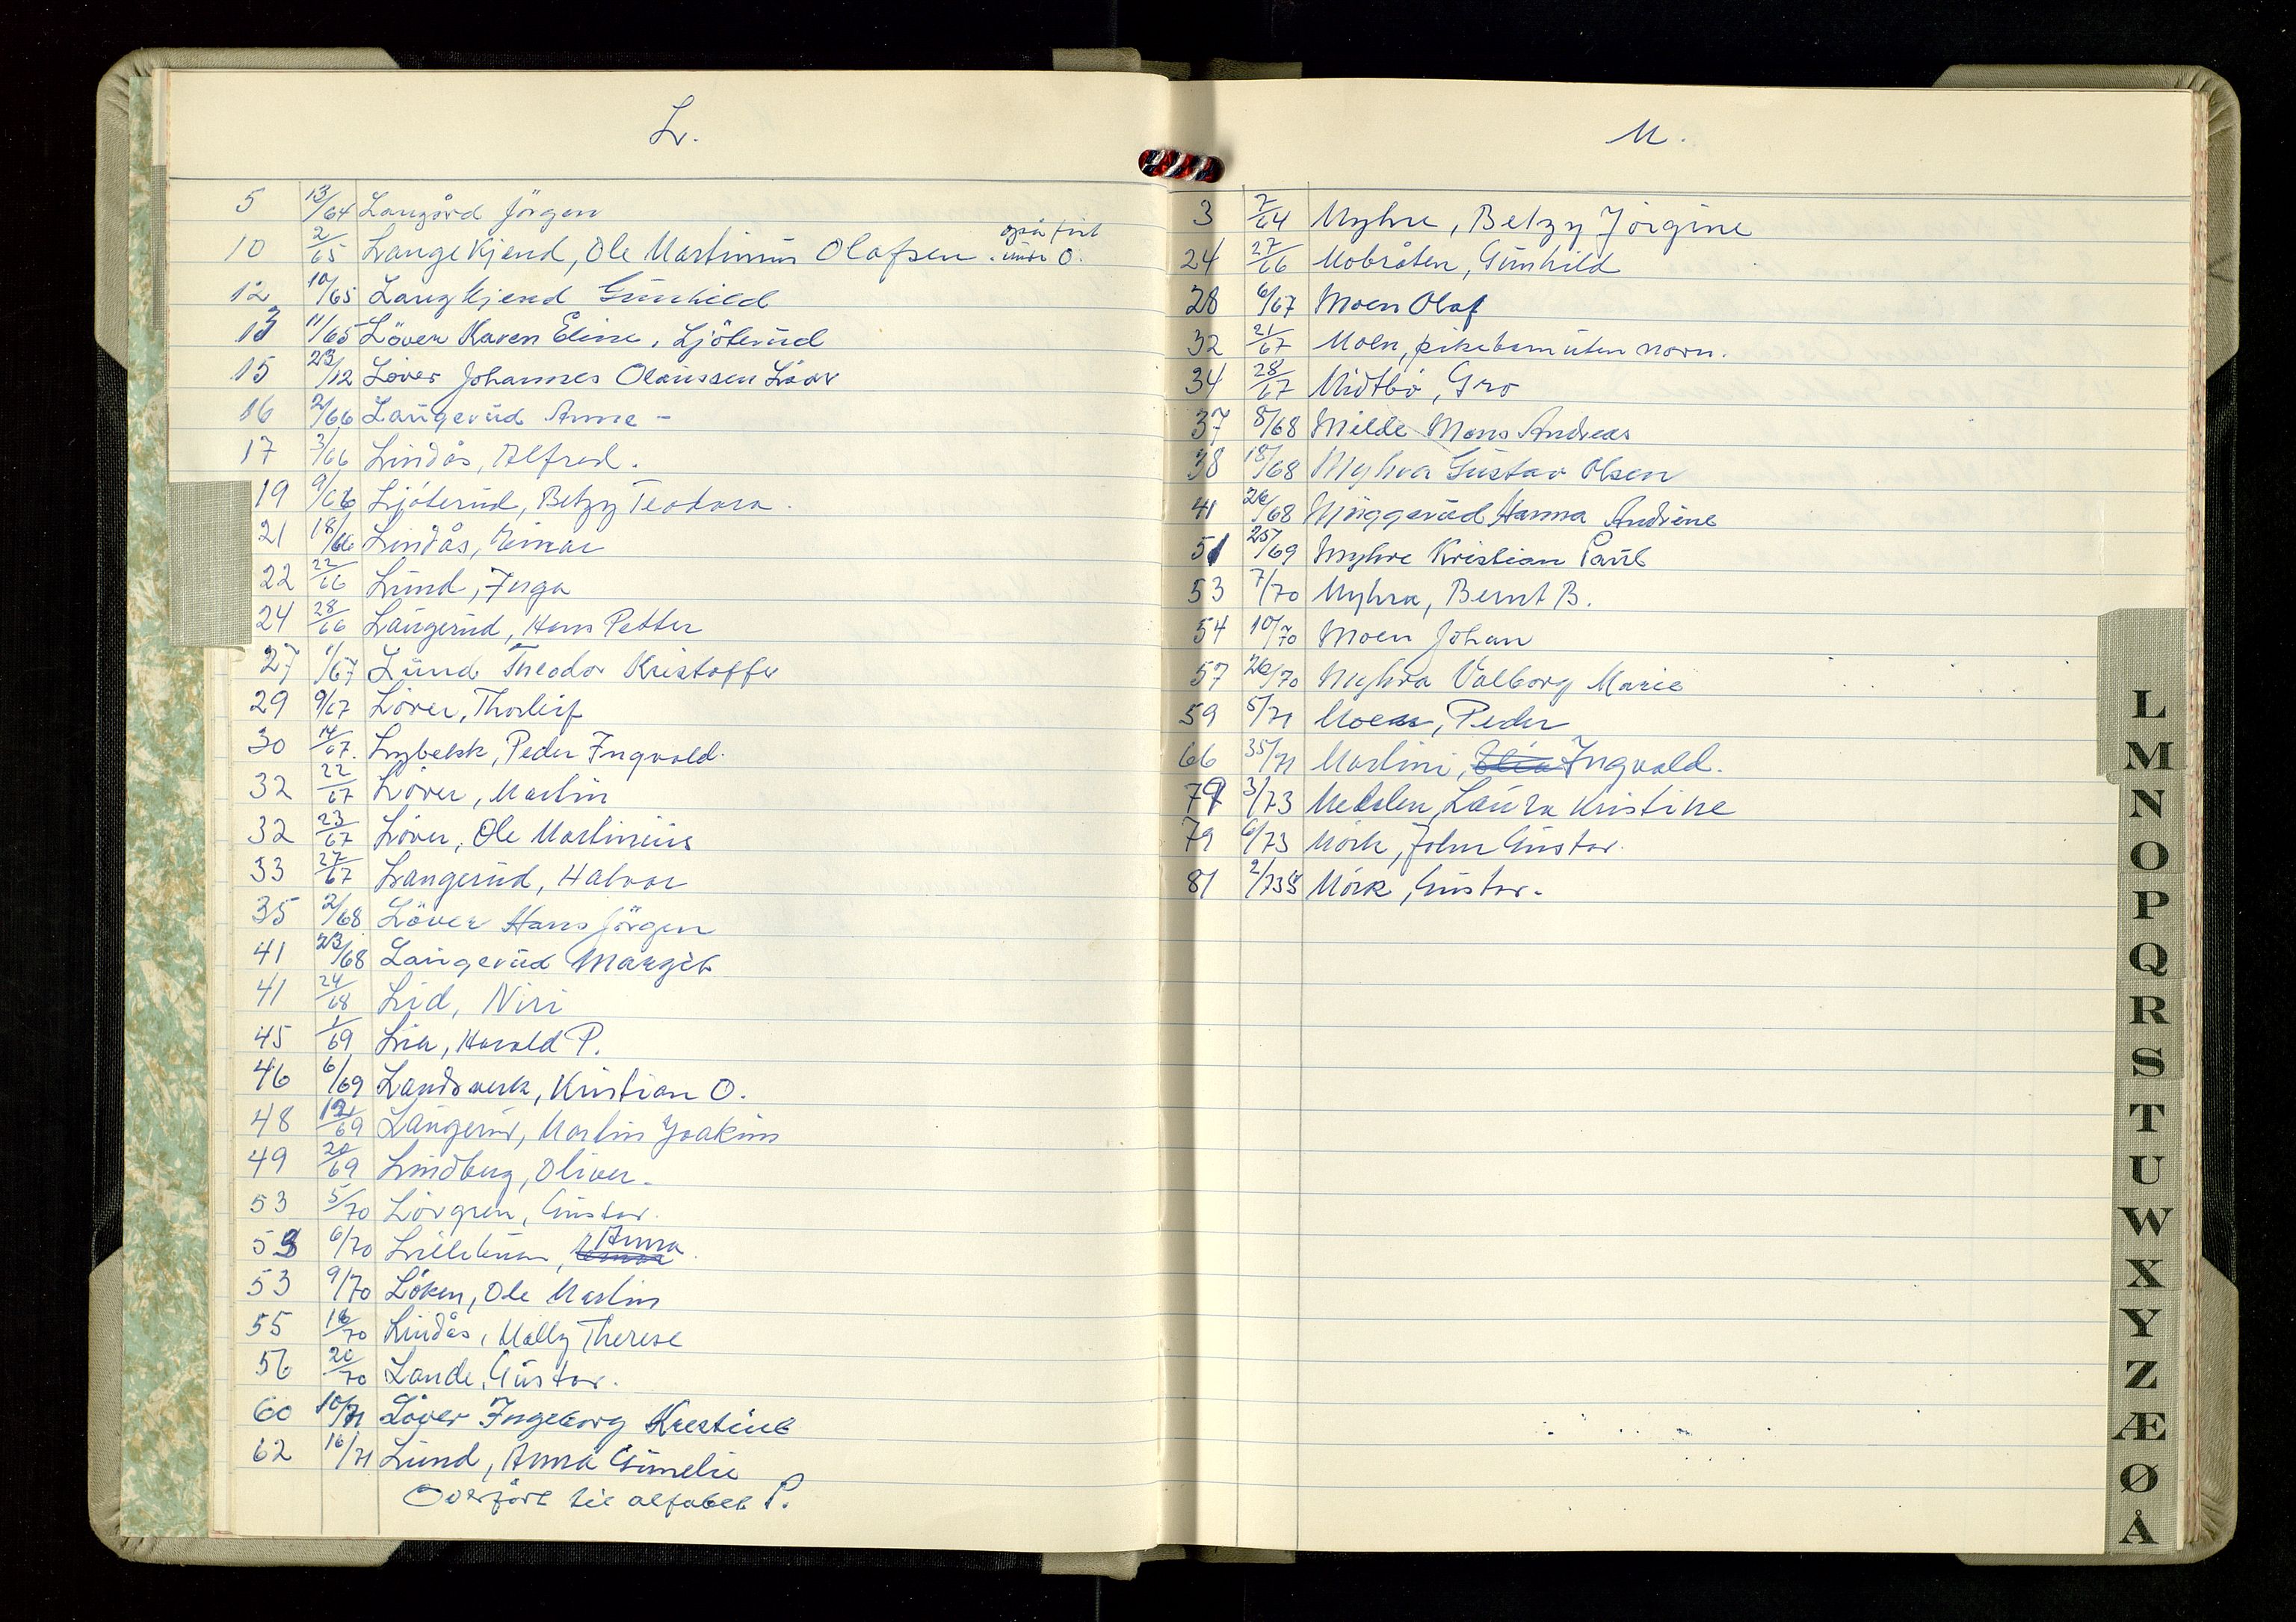 L.
5 13/64 Langård Jörgen
10 2/65 Langekjend, Ole Martinius Olafsen. også ført under O.
12 10/65 Langkjend Gunhild
13 11/65 Löver Karen Eline, Ljöterud
15 23/12 Löver Johannes Olaussen Löver
16 2/66 Langerud Anne -
17 3/66 Lindås, Alfred.
19 9/66 Ljöterud, Betzy Teodora.
21 18/66 Lindås, Einar
22 22/66 Lund, Inga
24 28/66 Langerud, Hans Petter
27 1/67 Lund Theodor Kristoffer
29 9/67 Löver, Thorleif
30 14/67. Lybekk, Peder Ingvald.
32 22/67 Löver, Martin
32 23/67 Löver, Ole Martinius
33 27/67 Langerud, Halvor
35 2/68 Löver Hans Jörgen
41 23/68 Langerud Margit
41 24/68 Lid, Niri
45 1/69 Lia, Harald P.
46 6/69 Landsverk, Kristian O.
48 12/69 Langerud, Martin Joakim
49 20/69 Lindberg, Oliver.
53 5/70 Lövgren, Gustav.
53 6/70 Lilletun, Anna.
53 9/70 Löken, Ole Martin
55 16/70 Lindås, Mally Therese
56 20/70 Lande, Gustav.
60 10/71 Löver Ingeborg Kristine
62 16/71 Lund, Anna Gunelie
Overfört til alfabet P.
M.
3 7/64 Myhre, Betzy Jörgine
24 27/66 Mobråten, Gunhild
28 6/67 Moen Olaf
32 21/67 Moen, pikebarn uten navn.
34 28/67 Midtbö, Gro
37 8/68 Milde Mons Andreas
38 18/68 Myhra Gustav Olsen
41 26/68 Muggerud Hanna Andrine
51 25/69 Myhre Kristian Paul
53 7/70 Myhra, Bernt B.
54 10/70 Moen Johan
57 26/70 Myhra Valborg Marie
59 5/71 Moen, Peder
66 35/71 Martini, Ingvald.
79 3/73 Medalen, Laura Kristine
79 6/73 Mörk, John Gustav.
81 2/735 Mörk, Gustav.
L
M
N
O
P
Q
R
S
T
U
W
X
Y
Z
Æ
Ø
Å